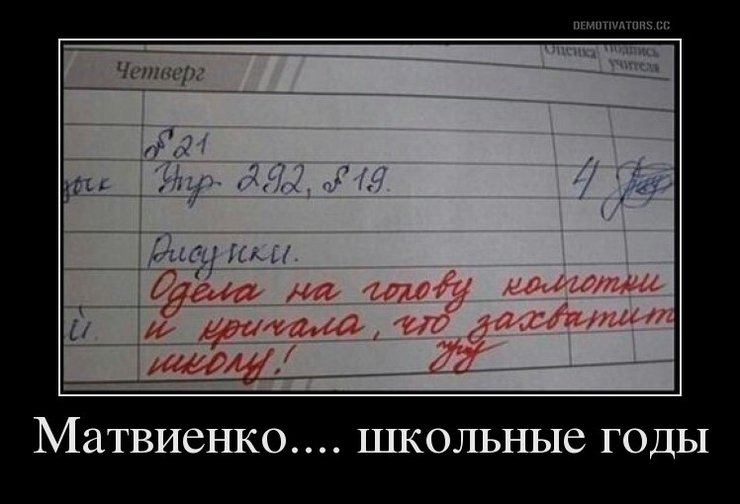 DEMOTIVATORS.CC
Оценка Подпись учителя
Четверг
§ 21
зык Упр. 292, § 19. 4
Рисунки.
Одела на голову колготки
й. и кричала, что захватит
школу!
Матвиенко.... школьные годы